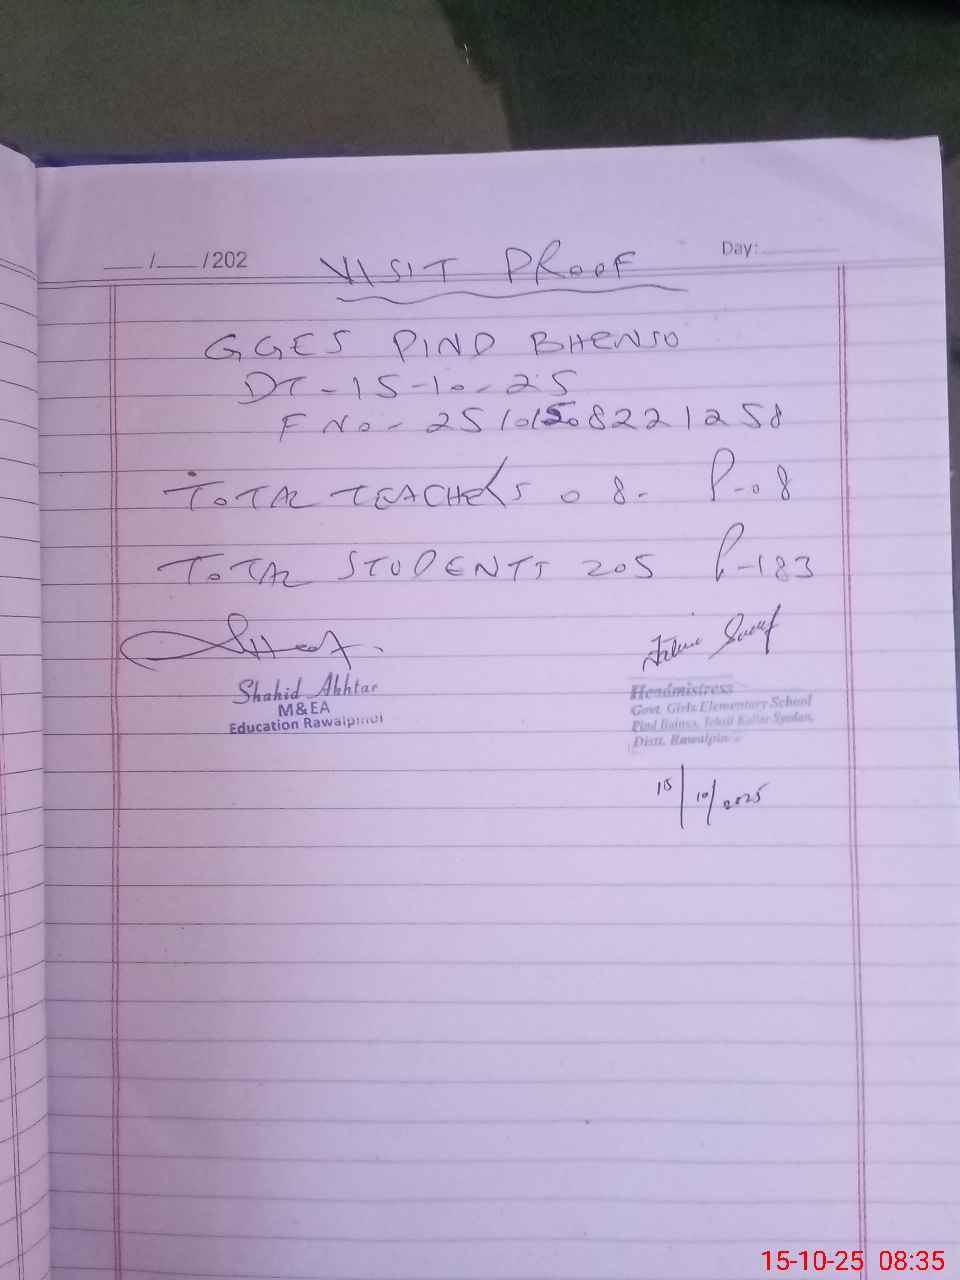 ___/___/202
VISIT PROOF
Day:
GGES PIND BHENSO
DT-15-10-25
F No- 25101508221258
TOTAL TEACHERS 08- P-08
TOTAL STUDENTS 205 P-183
Shahid Akhtar
M&EA
Education Rawalpindi
Headmistress
Govt. Girls Elementary School
Pind Tehsil Kallar Syedan,
Distt. Rawalpindi
15/10/2025
15-10-25 08:35